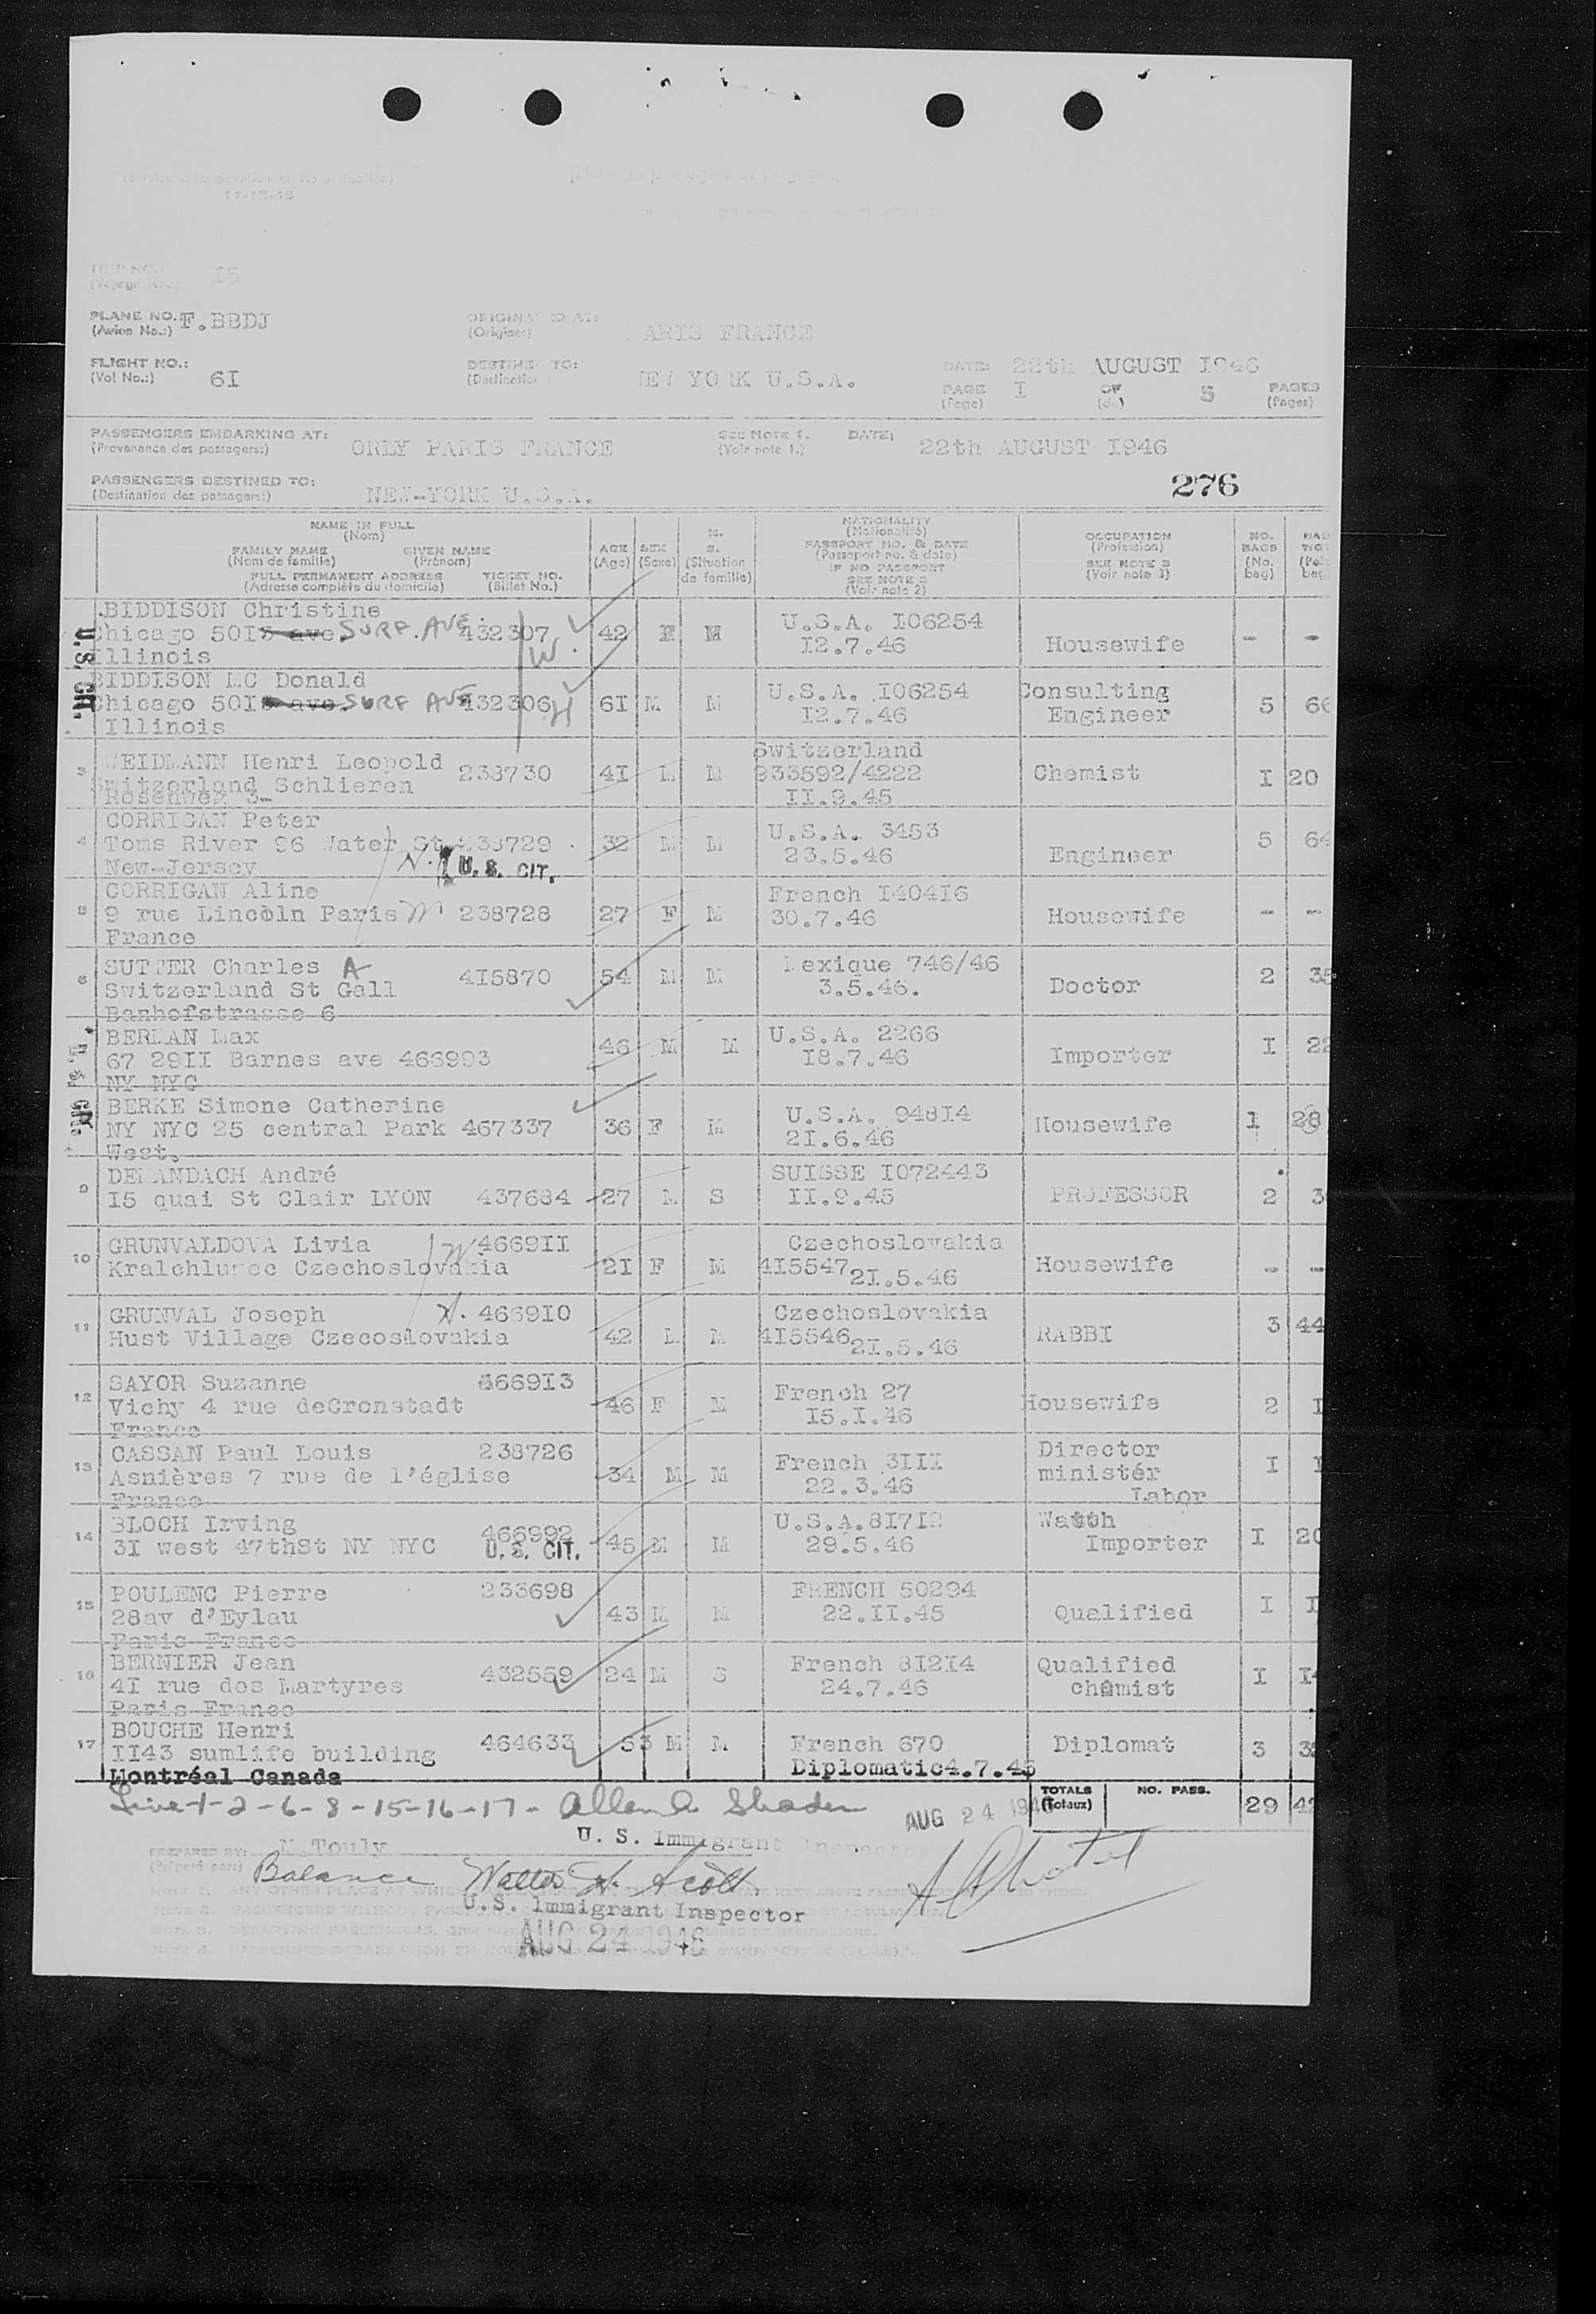 PLANE NO. F.BBDJ
(Avion No.:)
ORIGINATED AT:
(Origine:) PARIS FRANCE
FLIGHT NO.: 6I
(Vol No.:)
DESTINED TO: NEW YORK U.S.A.
(Destination
DATE: 22th AUGUST I946
PAGE I OF 5 PAGES
(Page) (de) (Pages)
PASSENGERS EMBARKING AT: ORLY PARIS FRANCE
(Provenance des passagers:)
SEE NOTE 1. DATE: 22th AUGUST I946
(Voir note 1.)
PASSENGERS DESTINED TO: NEW-YORK U.S.A.
(Destination des passagers:)
276
NAME IN FULL
(Nom)
FAMILY NAME GIVEN NAME
(Nom de famille) (Prénom)
FULL PERMANENT ADDRESS TICKET NO.
(Adresse complète du domicile) (Billet No.)
AGE SEX M. S.
(Age) (Sexe) (Situation de famille)
NATIONALITY
(Nationalité)
PASSPORT NO. & DATE
(Passeport no. & date)
IF NO PASSPORT
SEE NOTE 2
(Voir note 2)
OCCUPATION
(Profession)
SEE NOTE 3
(Voir note 3)
NO. BAGS
(No. bag)
BIDDISON Christine
Chicago 50I5 ave SURF. AVE. 432307 W. 42 F M U.S.A. I06254 I2.7.46 Housewife - -
Illinois
U.S. CIT.
BIDDISON MC Donald
Chicago 50I ave SURF AVE 432306 H 6I M M U.S.A. I06254 I2.7.46 Consulting Engineer 5 66
Illinois
3 WEIDMANN Henri Leopold 238730 4I M M Switzerland 933592/4222 II.9.45 Chemist I 20
Switzerland Schlieren
Rosenweg 3-
4 CORRIGAN Peter
Toms River 96 Water St 238729 32 M M U.S.A. 3453 23.5.46 Engineer 5 64
New-Jersey U.S. CIT.
5 CORRIGAN Aline
9 rue Lincoln Paris 238728 27 F M French I404I6 30.7.46 Housewife - -
France
6 SUTTER Charles A 4I5870 54 M M Lexique 746/46 3.5.46. Doctor 2 35
Switzerland St Gall
Banhofstrasse 6
BERMAN Max
67 29II Barnes ave 466993 46 M M U.S.A. 2266 I8.7.46 Importer I 22
NY NYC
BERKE Simone Catherine
NY NYC 25 central Park 467337 36 F M U.S.A. 948I4 2I.6.46 Housewife 1 28
West.
9 DEMANDACH André
I5 quai St Clair LYON 437684 27 M S SUISSE I072443 II.9.45 PROFESSOR 2 3
10 GRUNVALDOVA Livia W 4669II
Kralchlumec Czechoslovakia 2I F M Czechoslovakia 4I5547 2I.5.46 Housewife - -
11 GRUNVAL Joseph H. 4669I0
Hust Village Czecoslovakia 42 M M Czechoslovakia 4I5546 2I.5.46 RABBI 3 44
12 SAYOR Suzanne 4669I3
Vichy 4 rue deCronstadt 46 F M French 27 I5.I.46 Housewife 2 I
France
13 CASSAN Paul Louis 238726
Asnières 7 rue de l'église 34 M M French 3III 22.3.46 Director ministér Labor I I
France
14 BLOCH Irving 466992
3I west 47thSt NY NYC U.S. CIT. 45 M M U.S.A.8I7I2 29.5.46 Watch Importer I 20
15 POULENC Pierre 233698
28av d'Eylau 43 M M FRENCH 50294 22.II.45 Qualified I I
Paris France
16 BERNIER Jean
4I rue des Martyres 432559 24 M S French 8I2I4 24.7.46 Qualified chemist I I4
Paris France
17 BOUCHE Henri
II43 sumlife building 464633 53 M M French 670 Diplomatic4.7.45 Diplomat 3 38
Montréal Canada
Line 1-2-6-8-15-16-17- Allan A Shader
AUG 24 1946
TOTALS NO. PASS. 29 42
(Totaux)
U.S. Immigrant Inspector
PREPARED BY: M.Touly
(Préparé par:)
Balance Walter H. Scott
U.S. Immigrant Inspector
AUG 24 1946